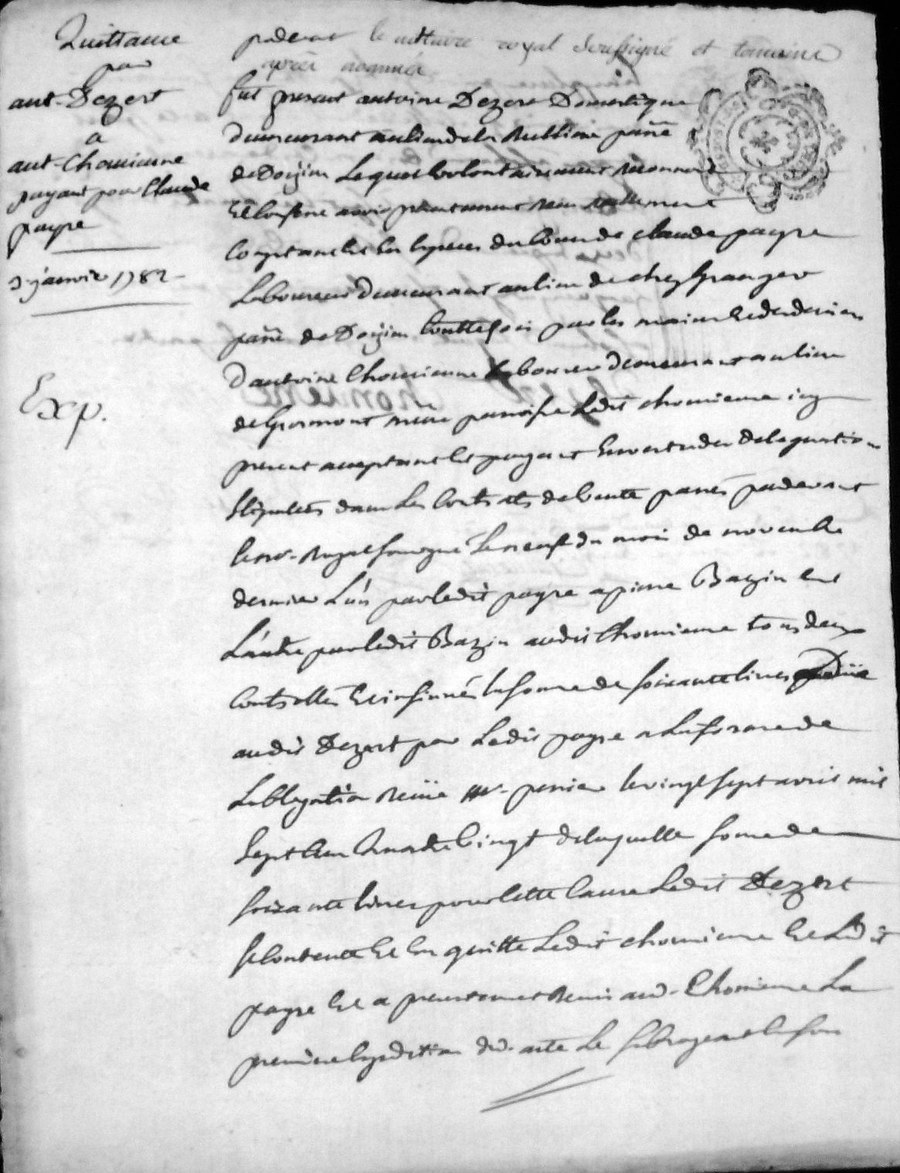 Quittance
par
ant. Dezert
a
ant. Chomienne
payant pour Claude
payre
3 janvier 1782
Exp.
pardevant le nottaire royal soussigné et temoins
après nommés
fut present antoine Dezert Domestique
demeurant au lieu de la parr̃e
de Doizieu Lequel volontairement reconnoit
Et Confesse avoir presentement reçeu reellement
comptant et En Especes du Cours de Claude payre
Laboureur demeurant au lieu de chez Granger
parr̃e de Doizieu touttefois par les mains et des deniers
d'antoine Chomienne Laboureur demeurant au lieu
de même parroisse Ledit chomienne icy
present acceptant et payant En vertu des delegations
Stipulées dans Les Contrats de Vente passés pardevant
le nore Royal soussigné Le neuf du mois de novembre
dernier L'un par ledit payre a pierre Bazin Et
L'autre par ledit Bazin audit Chomienne tous deux
Controllés Et insinués la somme de soixante livres deüe
audit Dezert par Ledit payre a La forme de
L'obligation Reçüe me perrier le vingt sept avril mil
Sept Cent Quatre Vingt de laquelle somme de
soixante livres pour cette Cause Ledit Dezert
se Contente Et En quitte Ledit chomienne Et Ledit
payre Et a presentement Remis aud. Chomienne La
premiere Expedition dud. acte Le